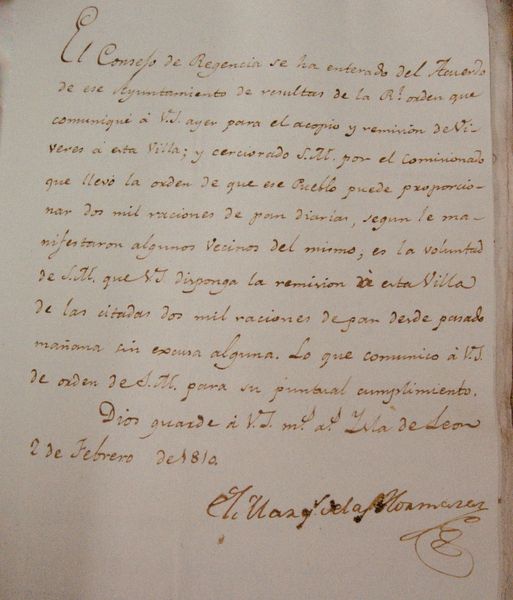 El Consejo de Regencia se ha enterado del Acuerdo
de ese Ayuntamiento de resultas de la Rl. orden que
comuniqué á V.S. ayer para el acopio y remision de Vi-
veres á esta Villa; y cerciorado S.M. por el comisionado
que llevó la orden de que ese Pueblo puede proporcio-
nar dos mil raciones de pan diarias, segun le ma-
nifestaron algunos vecinos del mismo; es la voluntad
de S.M. que VS. disponga la remision á esta Villa
de las citadas dos mil raciones de pan desde pasado
mañana sin excusa alguna. Lo que comunico á V.S.
de orden de S.M. para su puntual cumplimiento.
Dios guarde á V.S. ms. as. Isla de Leon
2 de Febrero de 1810.
El Marqs. de las Hormazas